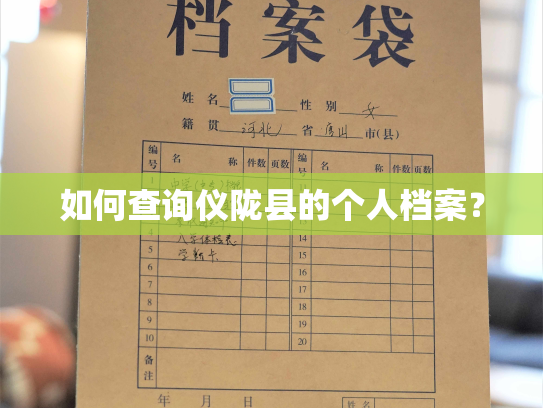 档案袋
姓名 性别 女
籍贯 河北 省 唐山 市(县)
编号 名称 件数 页数 编号 名称 件数 页数
1
如何查询仪陇县的个人档案？
4 入学体检表 14
5 学籍卡 15
6 16
7 17
8 18
9 19
10 20
备注
年 月 日
姓名